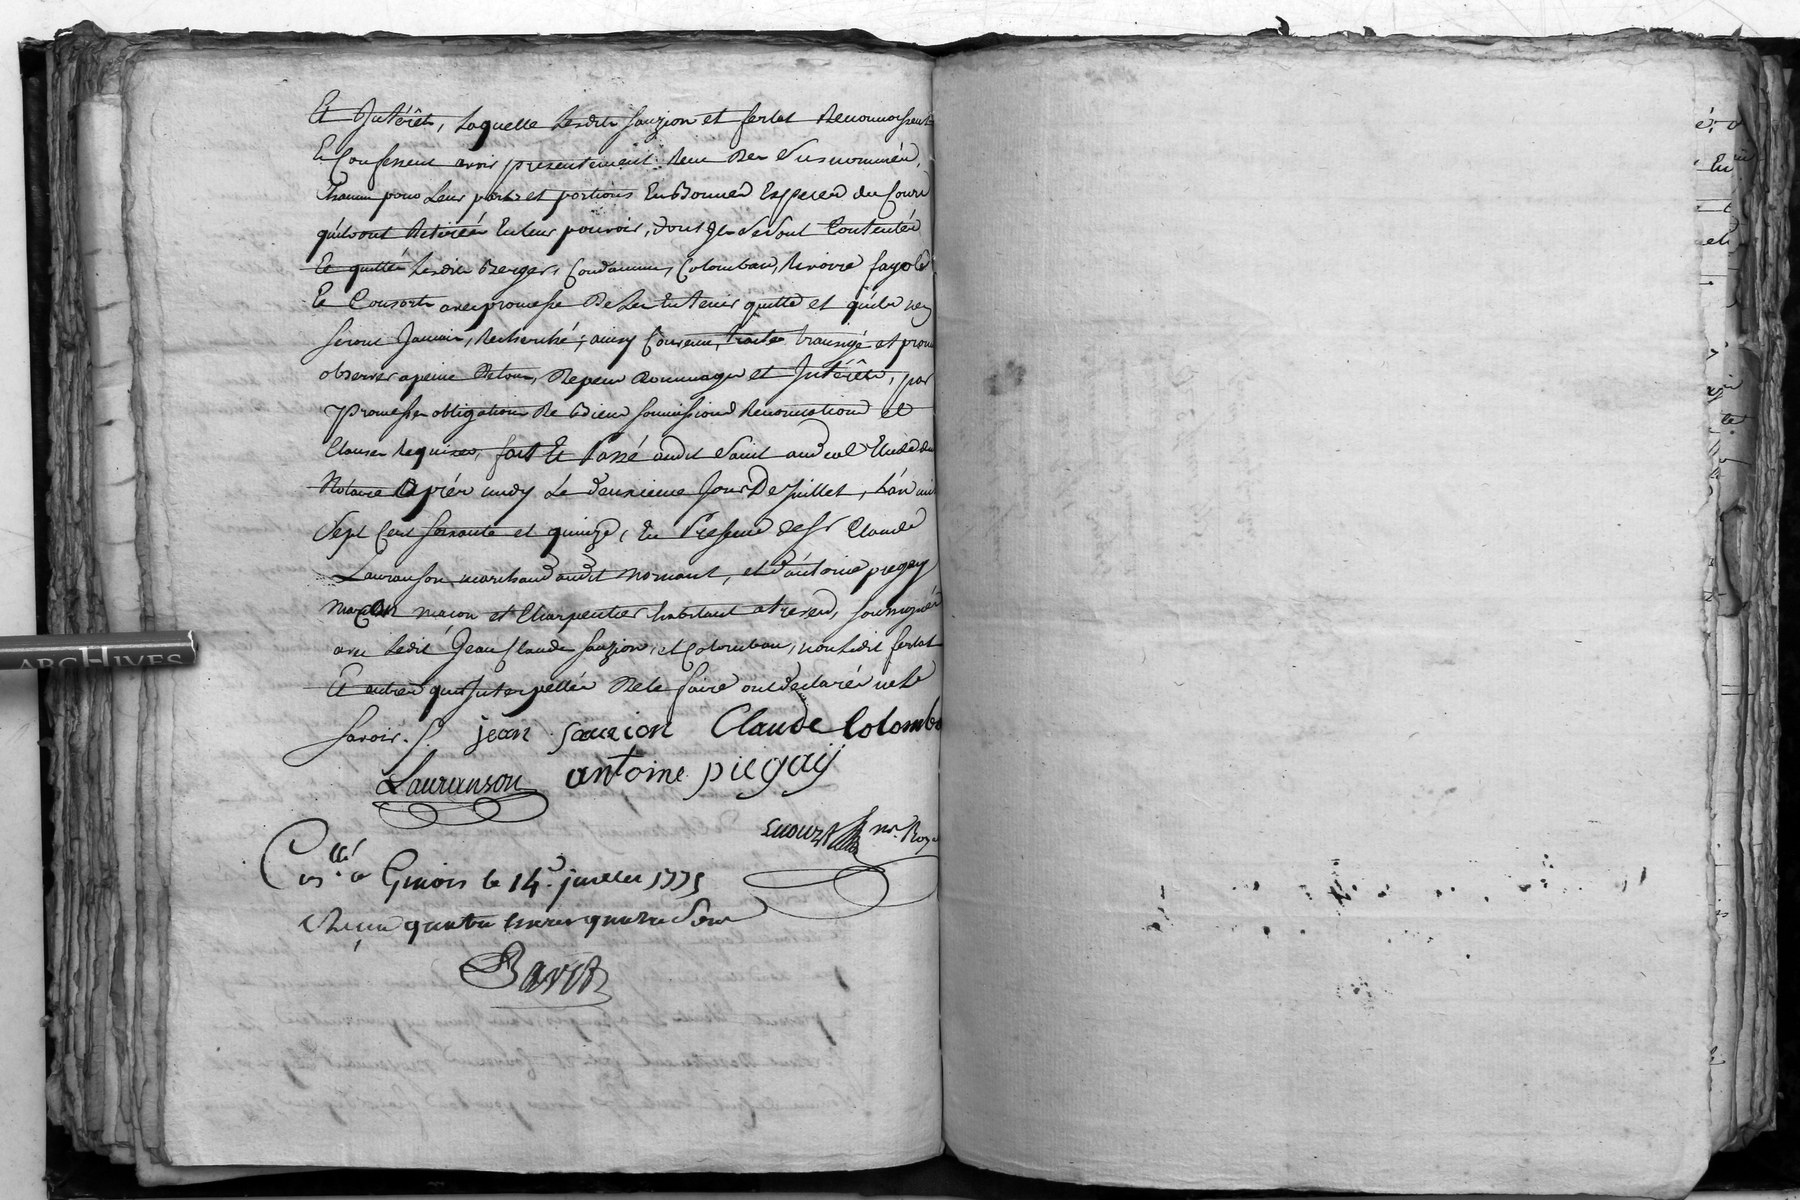 Et Intérêts, laquelle lesdits Sauzion et ferlat Reconnoissent
Et Confessent avoir presentement Reçu des Susnommés,
Chacun pour Leur parts et portions En Bonnes Especes du Cours
quils ont Retirées En leur pouvoir, dont Ils Se sont Contentés
Et quitté lesdits Berger, Condamin, Colomban, Rivoire fayole
Et Consorts avec promesse De Les En tenir quitte et quils n'en
Seront Jamais Recherché; ainsy Convenu, traité transigé et promis
observer a peine De tous, Depens Dommages et Intérêts, par
Promesses obligations De Biens soumissions Renonciations et
Clauses Requises, fait Et Passé audit Saint andeol Etude du
Notaire Après midy Le deuxieme Jour De Juillet, L'an mil
Sept Cent Soixante et quinze, En Presence de Sr Claude
Lauranson marchand audit Mornant, et d'antoine piegay
macon et Charpentier habitant a treves, soussignés
avec Ledit Jean Claude Sauzion, et Colomban, non Ledit ferlat
Et autres qui Interpellés De le faire ont declarés ne le
Savoir.
jean Sauzion Claude Colomb
Lauranson antoine piegaÿ
nre. Roy
Cllé a Givors le 14e. juillet 1775
Reçu quatre livres quatre Sous